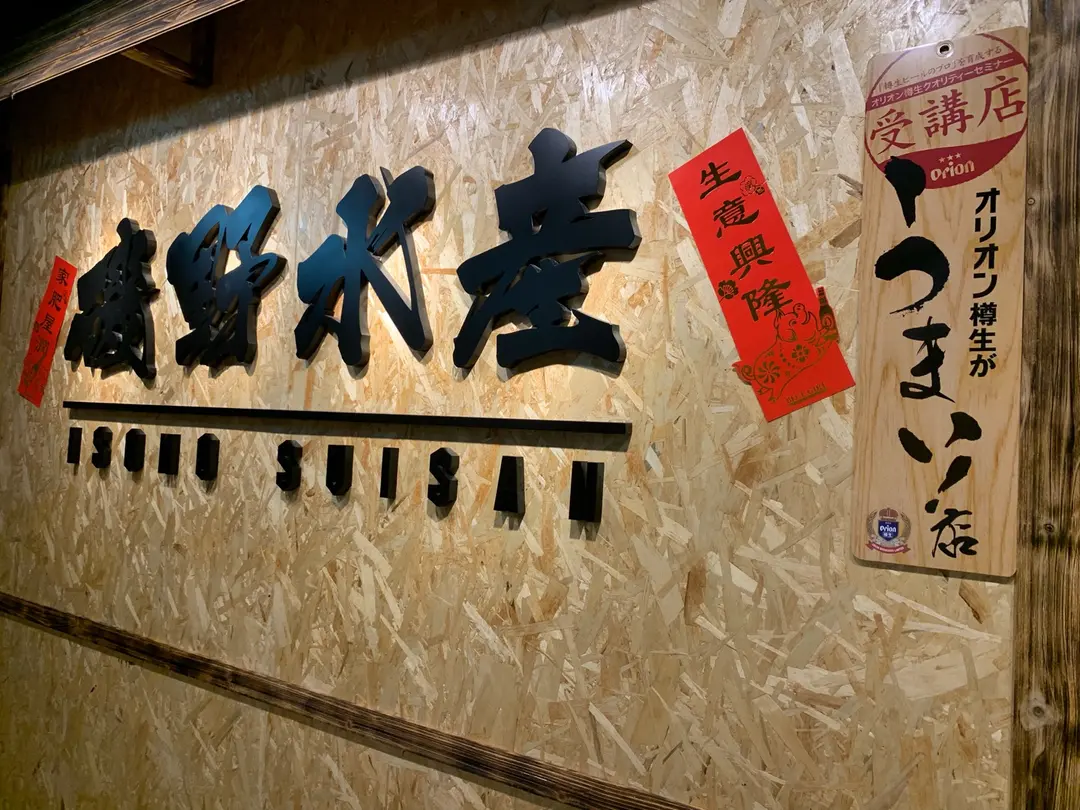 磯野水産
ISONO SUISAN
家肥屋潤
生意興隆
「樽生ビールのプロ」を育成する
オリオン樽生クオリティーセミナー
受講店
Orion
オリオン樽生が
うまい店
Orion